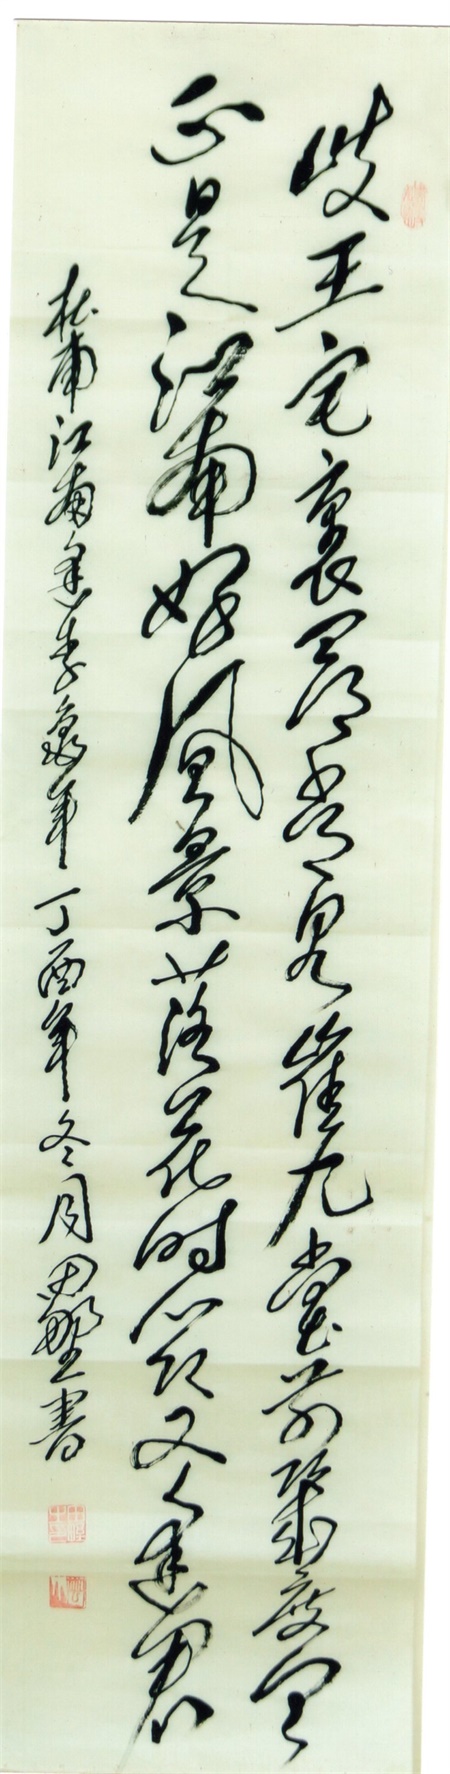 岐王宅裏尋常見崔九堂前幾度聞
正是江南好風景落花時節又逢君
杜甫江南逢李龜年 丁酉年冬月田書